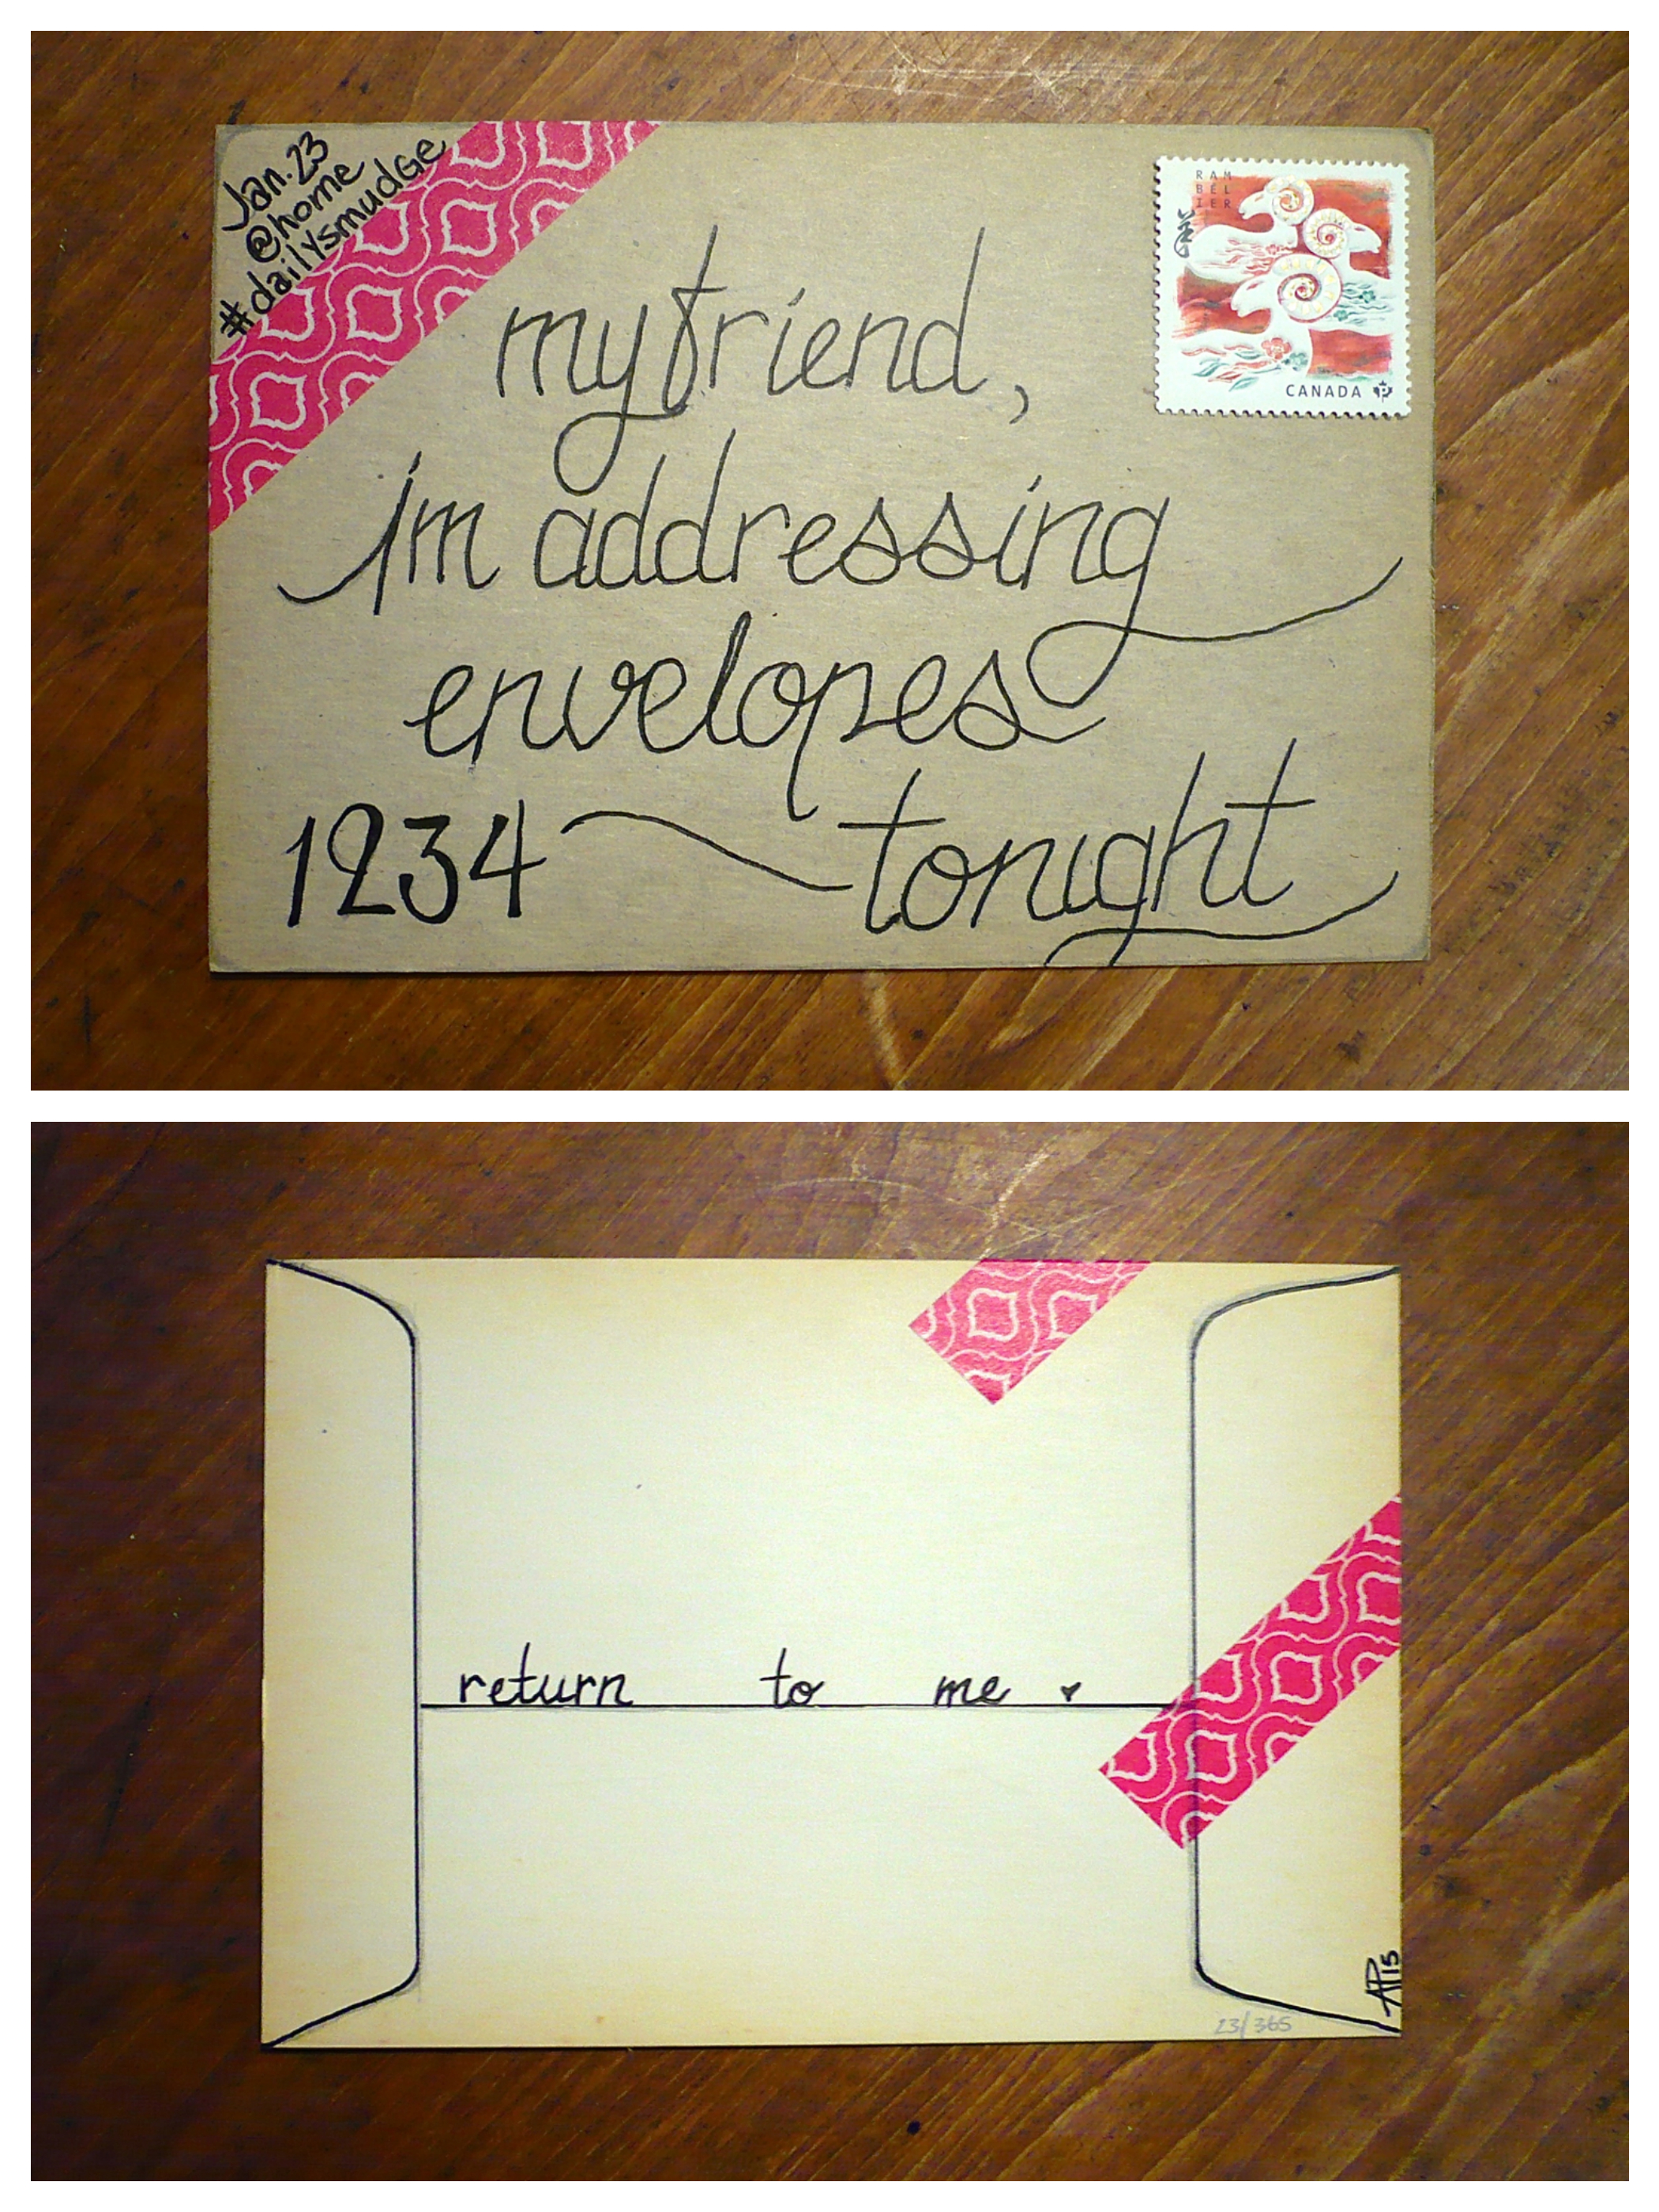 Jan. 23
@home
#dailysmudGe
RAM
BÉL
IER
CANADA P
my friend,
im addressing
envelopes
1234 tonight
return to me
AP15
23/365